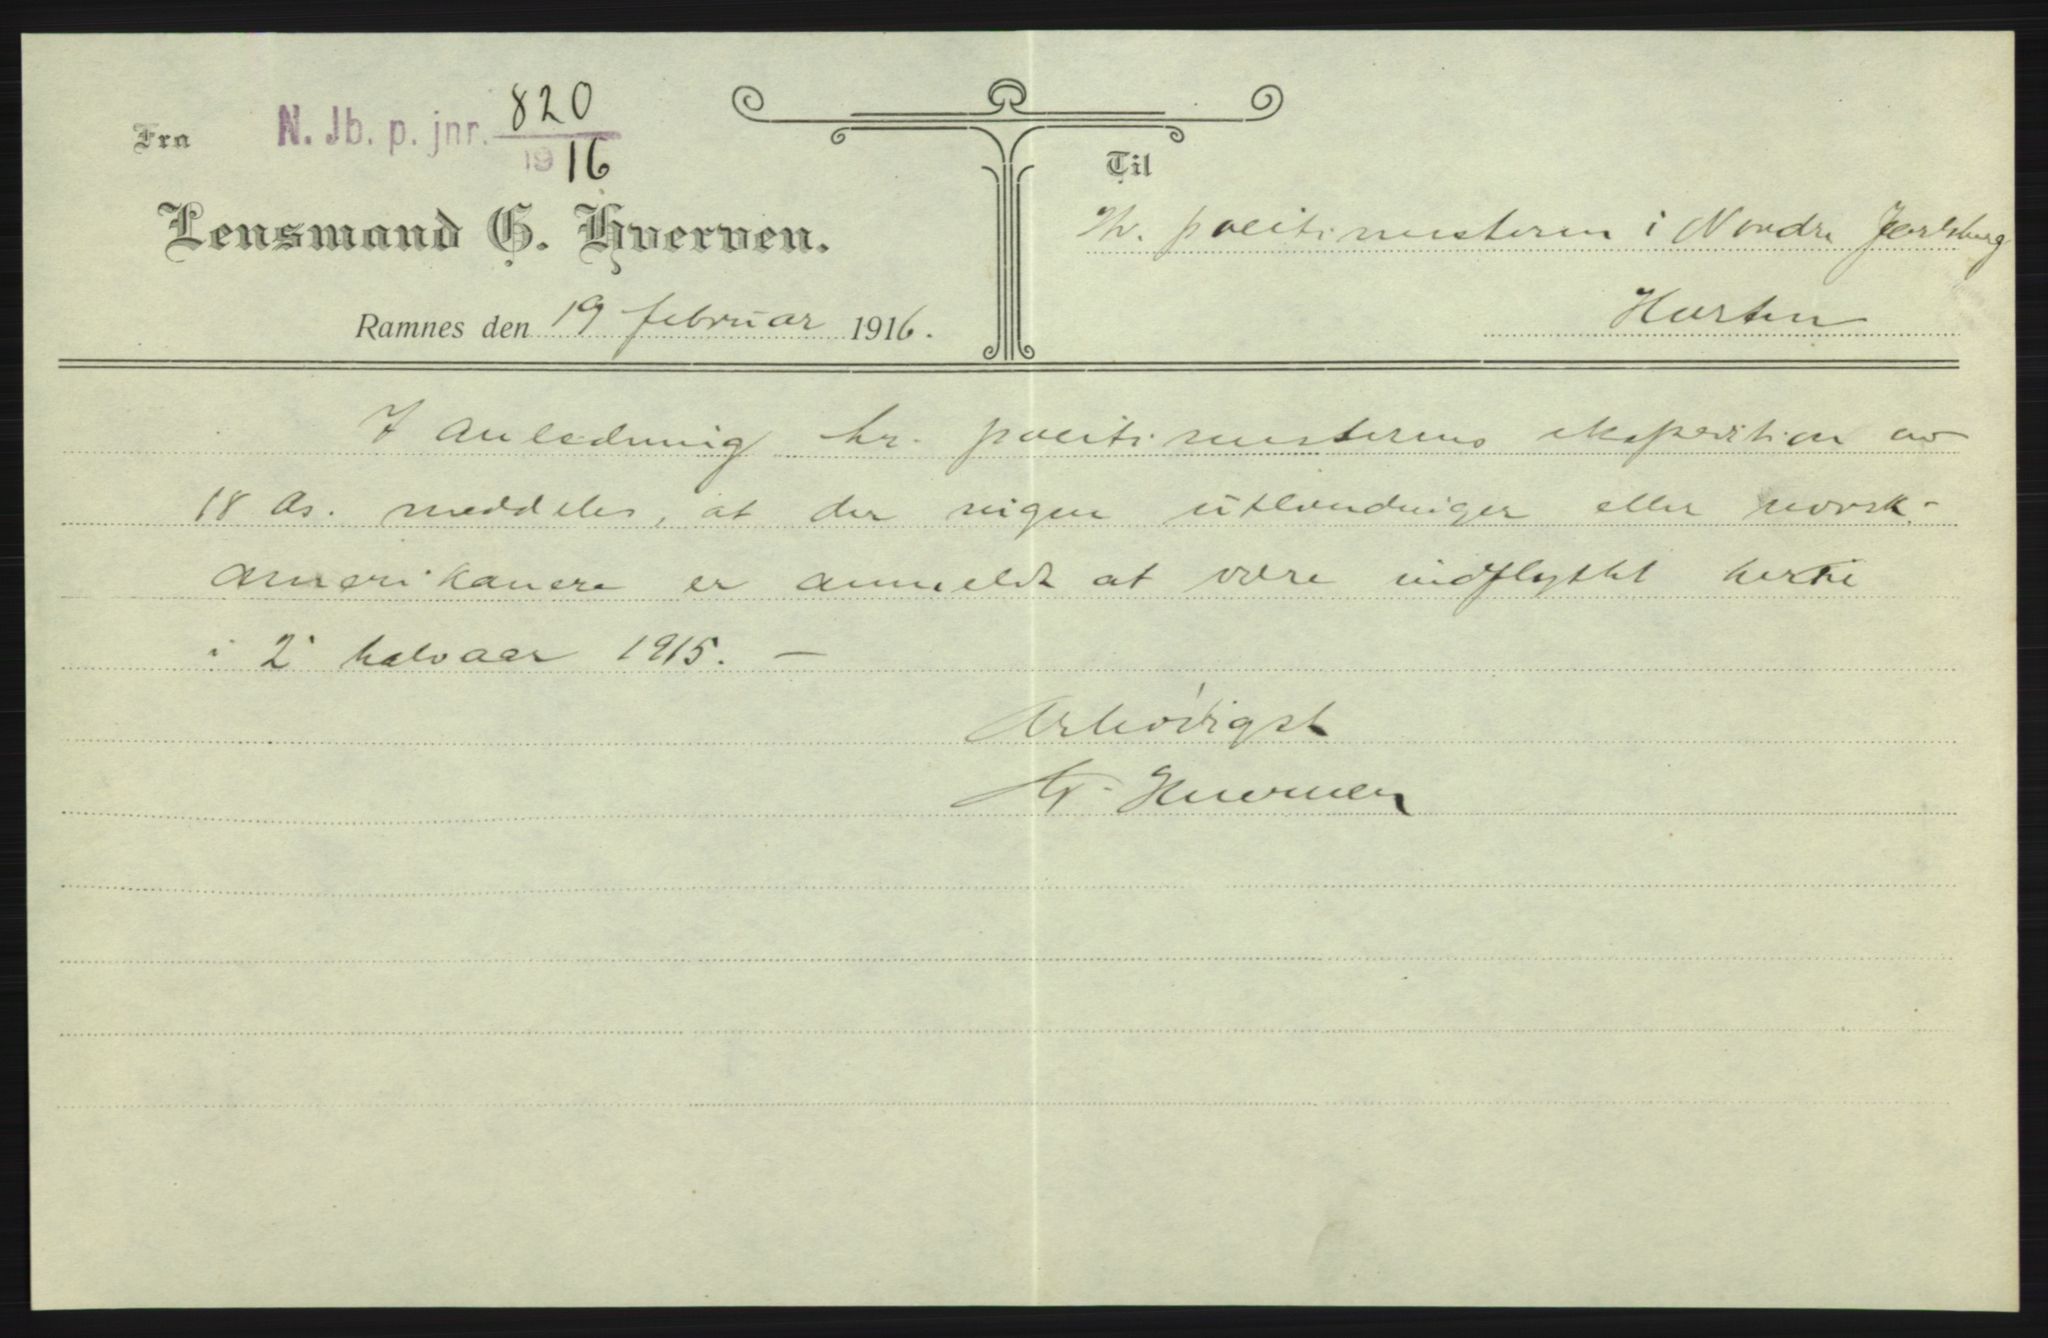 Fra
N. Jb. p. jnr. 820
1916
Lensmand G. Hverven.
Ramnes den 19 februar 1916.
Til
Hr. politimesteren i Nordre Jarlsberg
Horten
I anledning hr. politimesterens ekspedition av
18 ds. meddeles, at der ingen utlændinger eller norsk-
amerikanere er anmeldt at være indflyttet hertil
i 2' halvaar 1915. —
Ærbødigst
G. Hverven